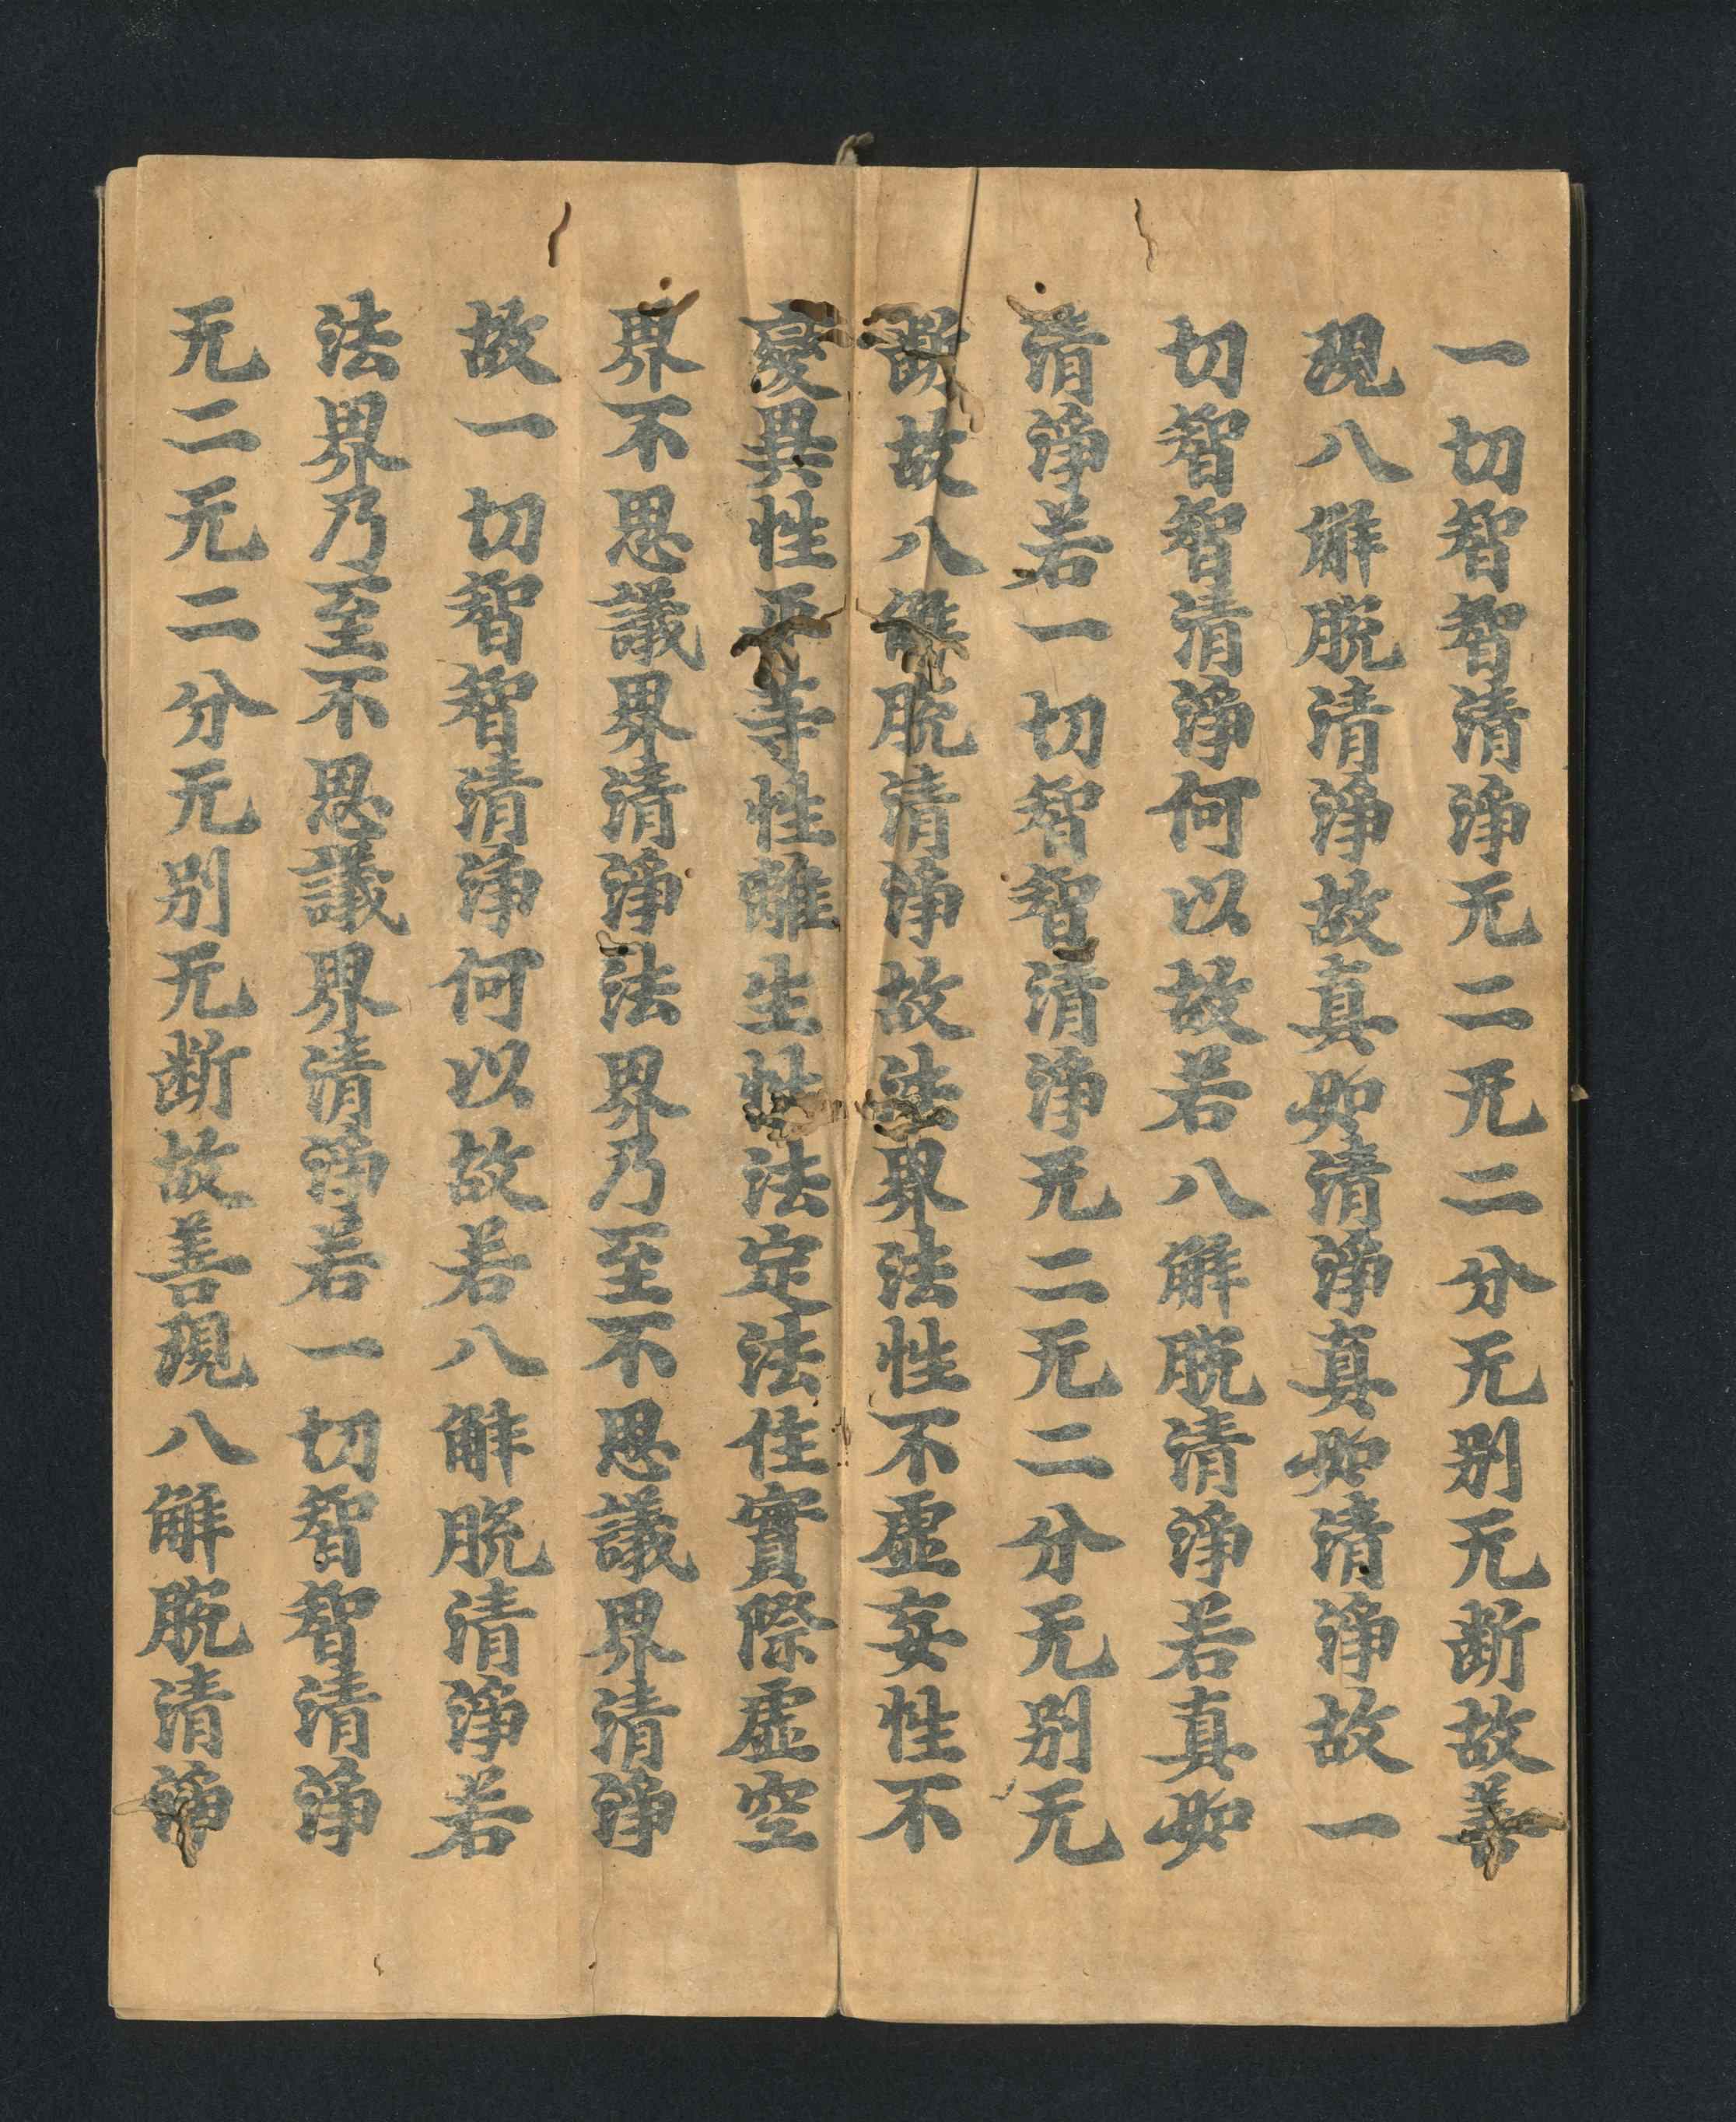 一切智智清淨无二无二分无别无断故善
現八解脫清淨故真如清淨真如清淨故一
切智智清淨何以故若八解脫清淨若真如
清淨若一切智智清淨无二无二分无别无
断故八解脫清淨故法界法性不虛妄性不
變異性平等性離生性法定法住實際虛空
界不思議界清淨法界乃至不思議界清淨
故一切智智清淨何以故若八解脫清淨若
法界乃至不思議界清淨若一切智智清淨
无二无二分无别无断故善現八解脫清淨